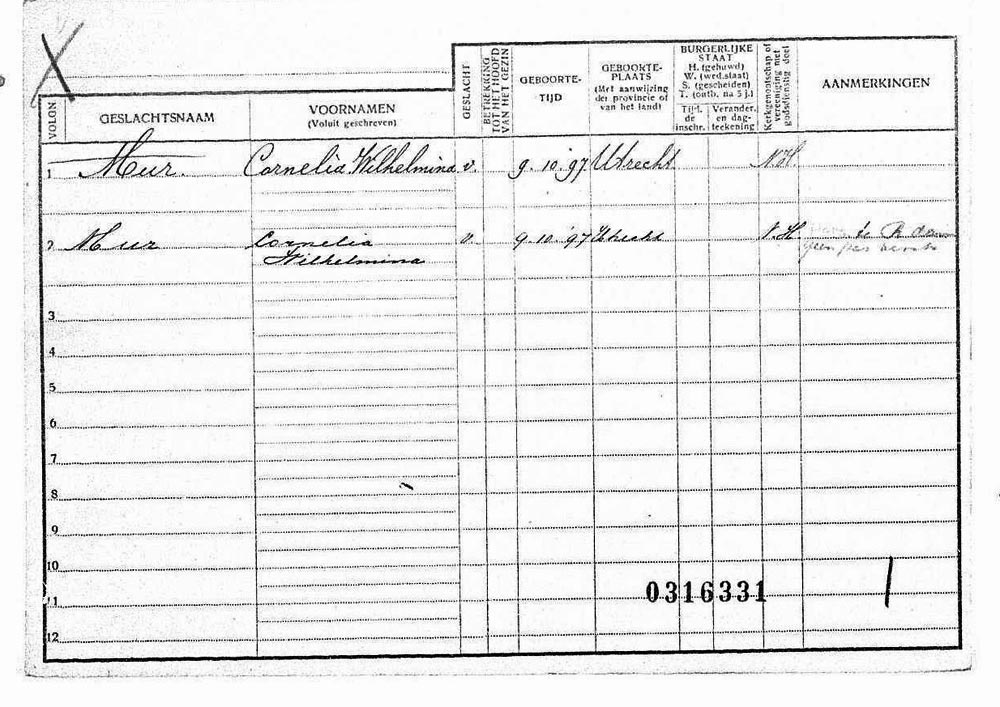 VOLGN.
GESLACHTSNAAM
VOORNAMEN
(Voluit geschreven)
GESLACHT
BETREKKING
TOT HET HOOFD
VAN HET GEZIN
GEBOORTE-
TIJD
GEBOORTE-
PLAATS
(Met aanwijzing
der provincie of
van het land)
BURGERLIJKE
STAAT
H. (gehuwd)
W. (wed. staat)
S. (gescheiden)
T. (ontb. na 5 j.)
Tijd.
de
inschr.
Verander.
en dag-
teekening
Kerkgenootschap of
vereeniging met
godsdienstig doel
AANMERKINGEN
1 Mur. Cornelia Wilhelmina v. 9.10.'97 Utrecht N.H.
2 Mur Cornelia v. 9.10.'97 Utrecht N.H. te R'dam
Wilhelmina geen
3
4
5
6
7
8
9
10
0316331
11
12